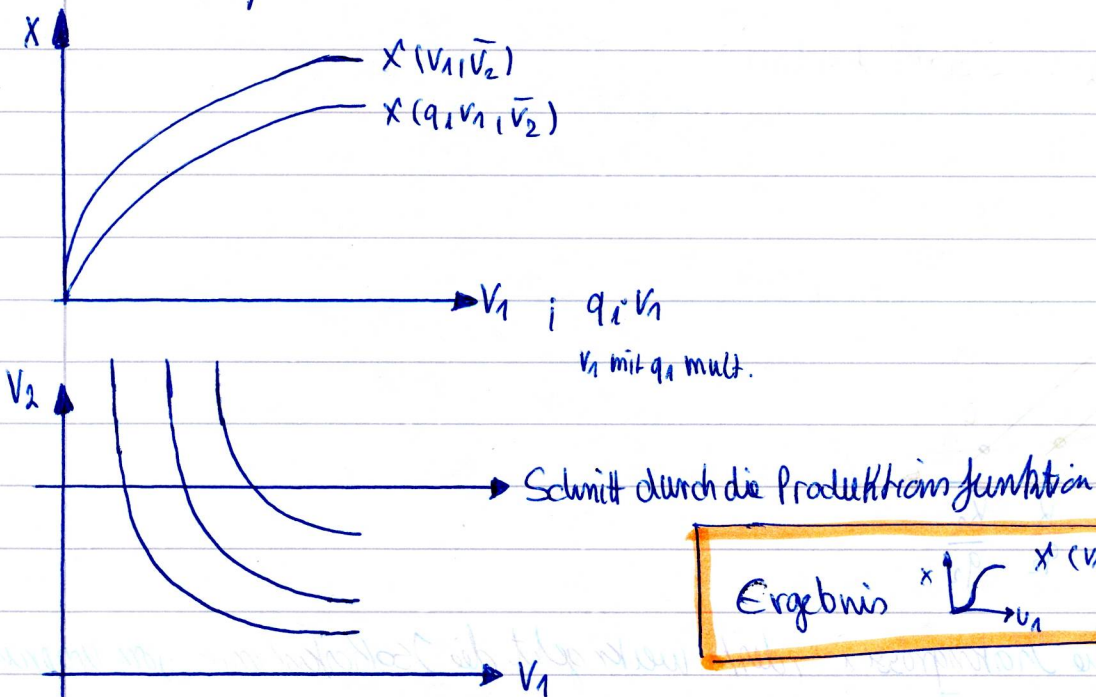 X
X (V₁, V̄₂)
X (q₁V₁, V̄₂)
V₁ ; q₁·V₁
V₁ mit q₁ mult.
V₂
Schnitt durch die Produktionsfunktion
Ergebnis
X
X (V
V₁
V₁